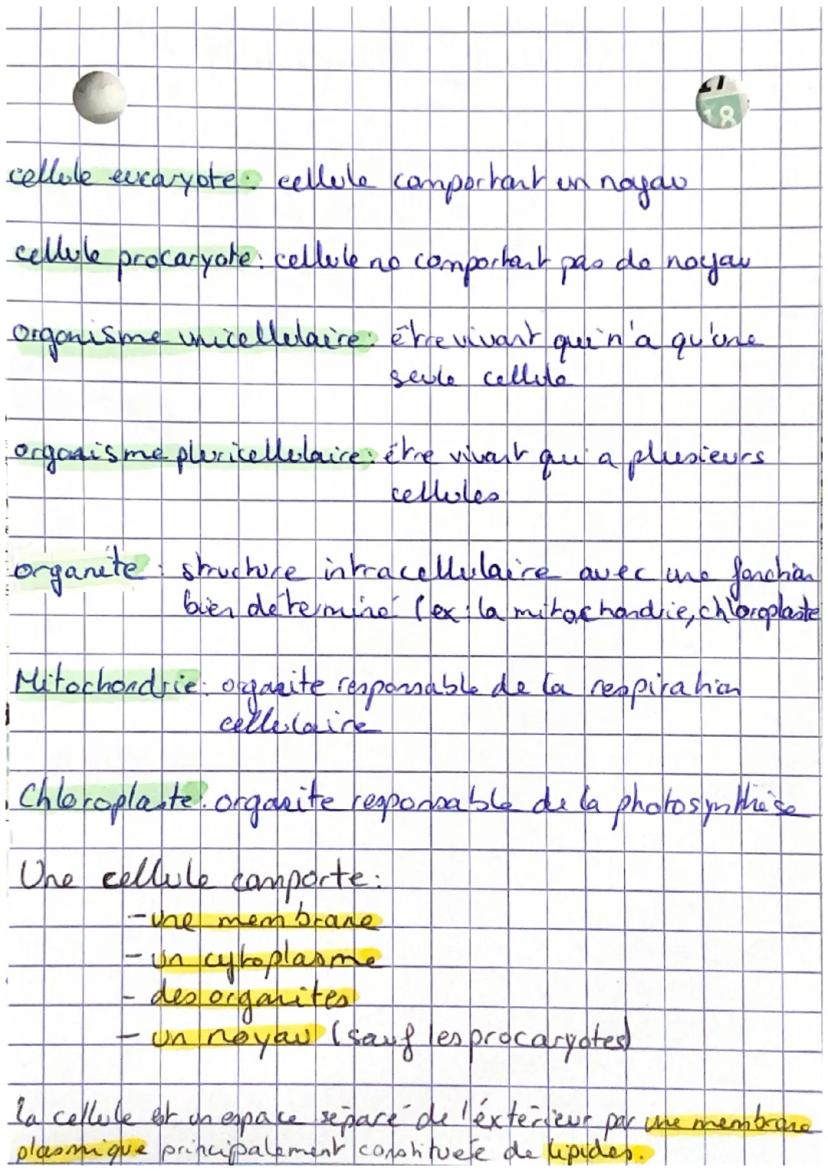 17
18
cellule eucaryote : cellule comportant un noyau
cellule procaryote : cellule ne comportant pas de noyau
organisme unicellulaire : être vivant qui n'a qu'une
seule cellule
organisme pluricellulaire : être vivant qui a plusieurs
cellules
organite : structure intracellulaire avec une fonction
bien déterminé (ex : la mitochondrie, chloroplaste
Mitochondrie : organite responsable de la respiration
cellulaire
Chloroplaste : organite responsable de la photosynthèse
Une cellule comporte :
- une membrane
- un cytoplasme
- des organites
- un noyau (sauf les procaryotes)
la cellule est un espace séparé de l'éxtérieur par une membrane
plasmique principalement constituéé de lipides.